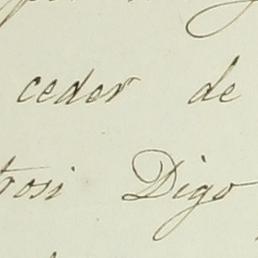 ceder de
rosi Digo